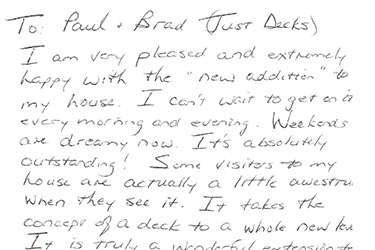 To: Paul + Brad (Just Decks)
I am very pleased and extremely
happy with the "new addition" to
my house. I can't wait to get on it
every morning and evening. Weekends
are dreamy now. It's absolutely
outstanding! Some visitors to my
house are actually a little awestru
when they see it. It takes the
concept of a deck to a whole new lev
It is truly a wonderful